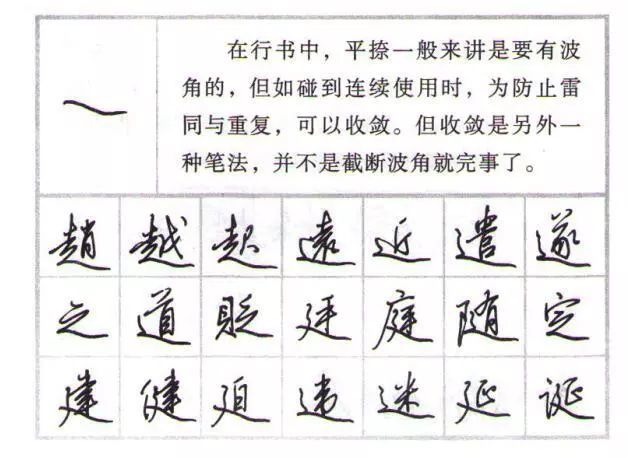 在行书中，平捺一般来讲是要有波
角的，但如碰到连续使用时，为防止雷
同与重复，可以收敛。但收敛是另外一
种笔法，并不是截断波角就完事了。
趙 越 起 遠 近 遣 遂
之 道 貶 廷 庭 随 定
建 健 廻 違 迷 延 诞